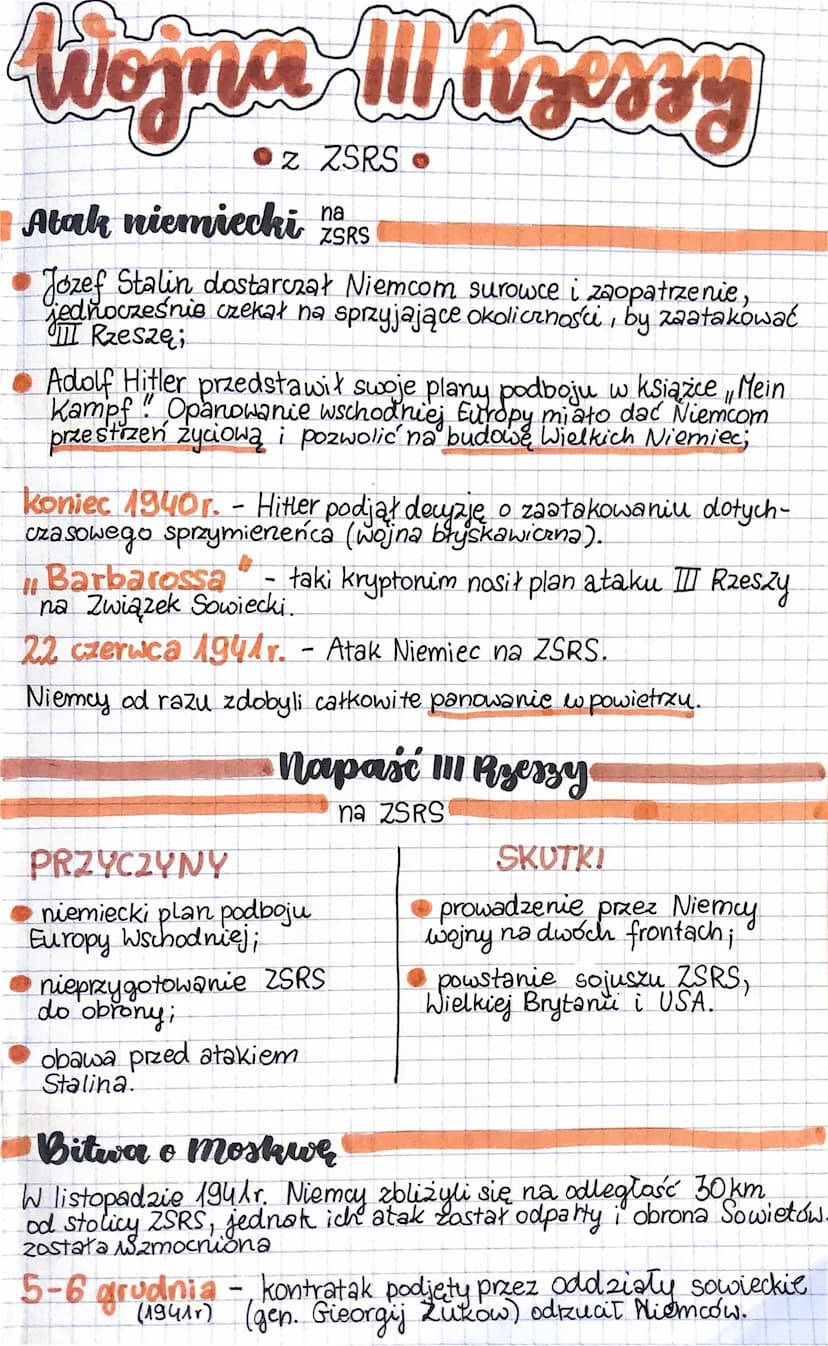 Wojna III Rzeszy
• z ZSRS •
Atak niemiecki na ZSRS
• Józef Stalin dostarczał Niemcom surowce i zaopatrzenie,
jednocześnie czekał na sprzyjające okoliczności, by zaatakować
III Rzeszę;
• Adolf Hitler przedstawił swoje plany podboju w książce „Mein
Kampf". Opanowanie wschodniej Europy miało dać Niemcom
przestrzeń życiową i pozwolić na budowę Wielkich Niemiec;
koniec 1940r. - Hitler podjął decyzję o zaatakowaniu dotych-
czasowego sprzymierzeńca (wojna błyskawiczna).
„Barbarossa" - taki kryptonim nosił plan ataku III Rzeszy
na Związek Sowiecki.
22 czerwca 1941r. - Atak Niemiec na ZSRS.
Niemcy od razu zdobyli całkowite panowanie w powietrzu.
Napaść III Rzeszy
na ZSRS
PRZYCZYNY
• niemiecki plan podboju
Europy Wschodniej;
• nieprzygotowanie ZSRS
do obrony;
• obawa przed atakiem
Stalina.
SKUTKI
• prowadzenie przez Niemcy
wojny na dwóch frontach;
• powstanie sojuszu ZSRS,
Wielkiej Brytanii i USA.
Bitwa o Moskwę
W listopadzie 1941r. Niemcy zbliżyli się na odległość 30 km
od stolicy ZSRS, jednak ich atak został odparty i obrona Sowietów.
została wzmocniona
5-6 grudnia - kontratak podjęty przez oddziały sowieckie
(1941r) (gen. Gieorgij Żukow) odrzucił Niemców.